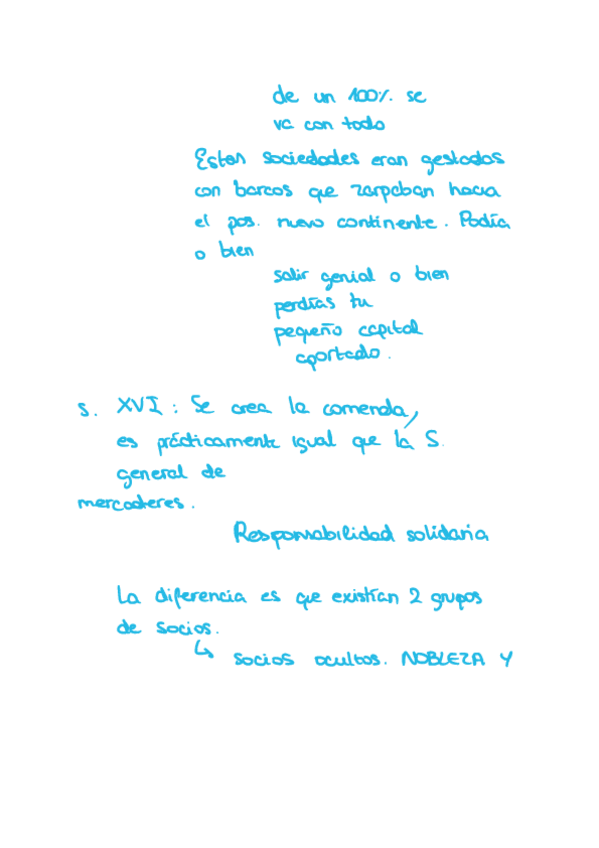 de un 100% se
va con todo
Estas sociedades eran gestadas
con barcos que zarpaban hacia
el pos. nuevo continente. Podía
o bien
salir genial o bien
perdías tu
pequeño capital
aportado.
s. XVI: Se crea la comenda,
es prácticamente igual que la S.
general de
mercaderes.
Responsabilidad solidaria
La diferencia es que existían 2 grupos
de socios.
↳ socios ocultos. NOBLEZA Y